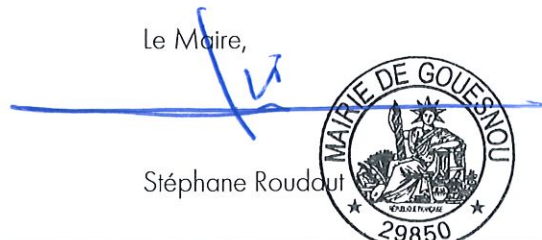 Le Maire,
Stéphane Roudaut
MAIRIE DE GOUESNOU
RÉPUBLIQUE FRANÇAISE
29850